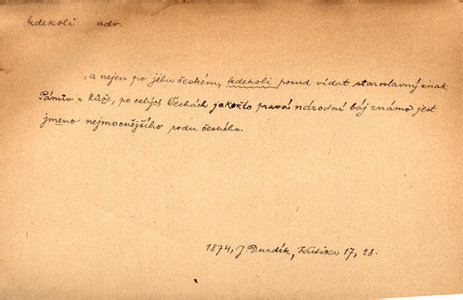 kdekoli adv.
, a nejen po jihu českém, kdekoli posud vídat staroslavný znak
Pánův z Růže, po celých Čechách jakožto pravá národní báj známo jest
jmeno nejmocnějšího rodu českého.
1874, J. Durdík, Kritika 17, 28.